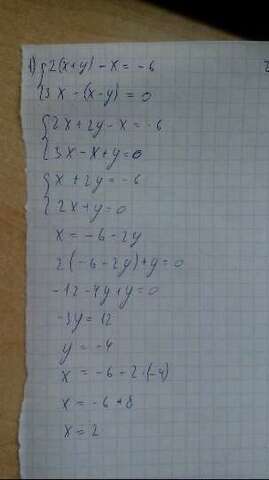 1) { 2(x+y) - x = -6
{ 3x - (x-y) = 0
{ 2x + 2y - x = -6
{ 3x - x + y = 0
{ x + 2y = -6
{ 2x + y = 0
x = -6 - 2y
2(-6 - 2y) + y = 0
-12 - 4y + y = 0
-3y = 12
y = -4
x = -6 - 2·(-4)
x = -6 + 8
x = 2